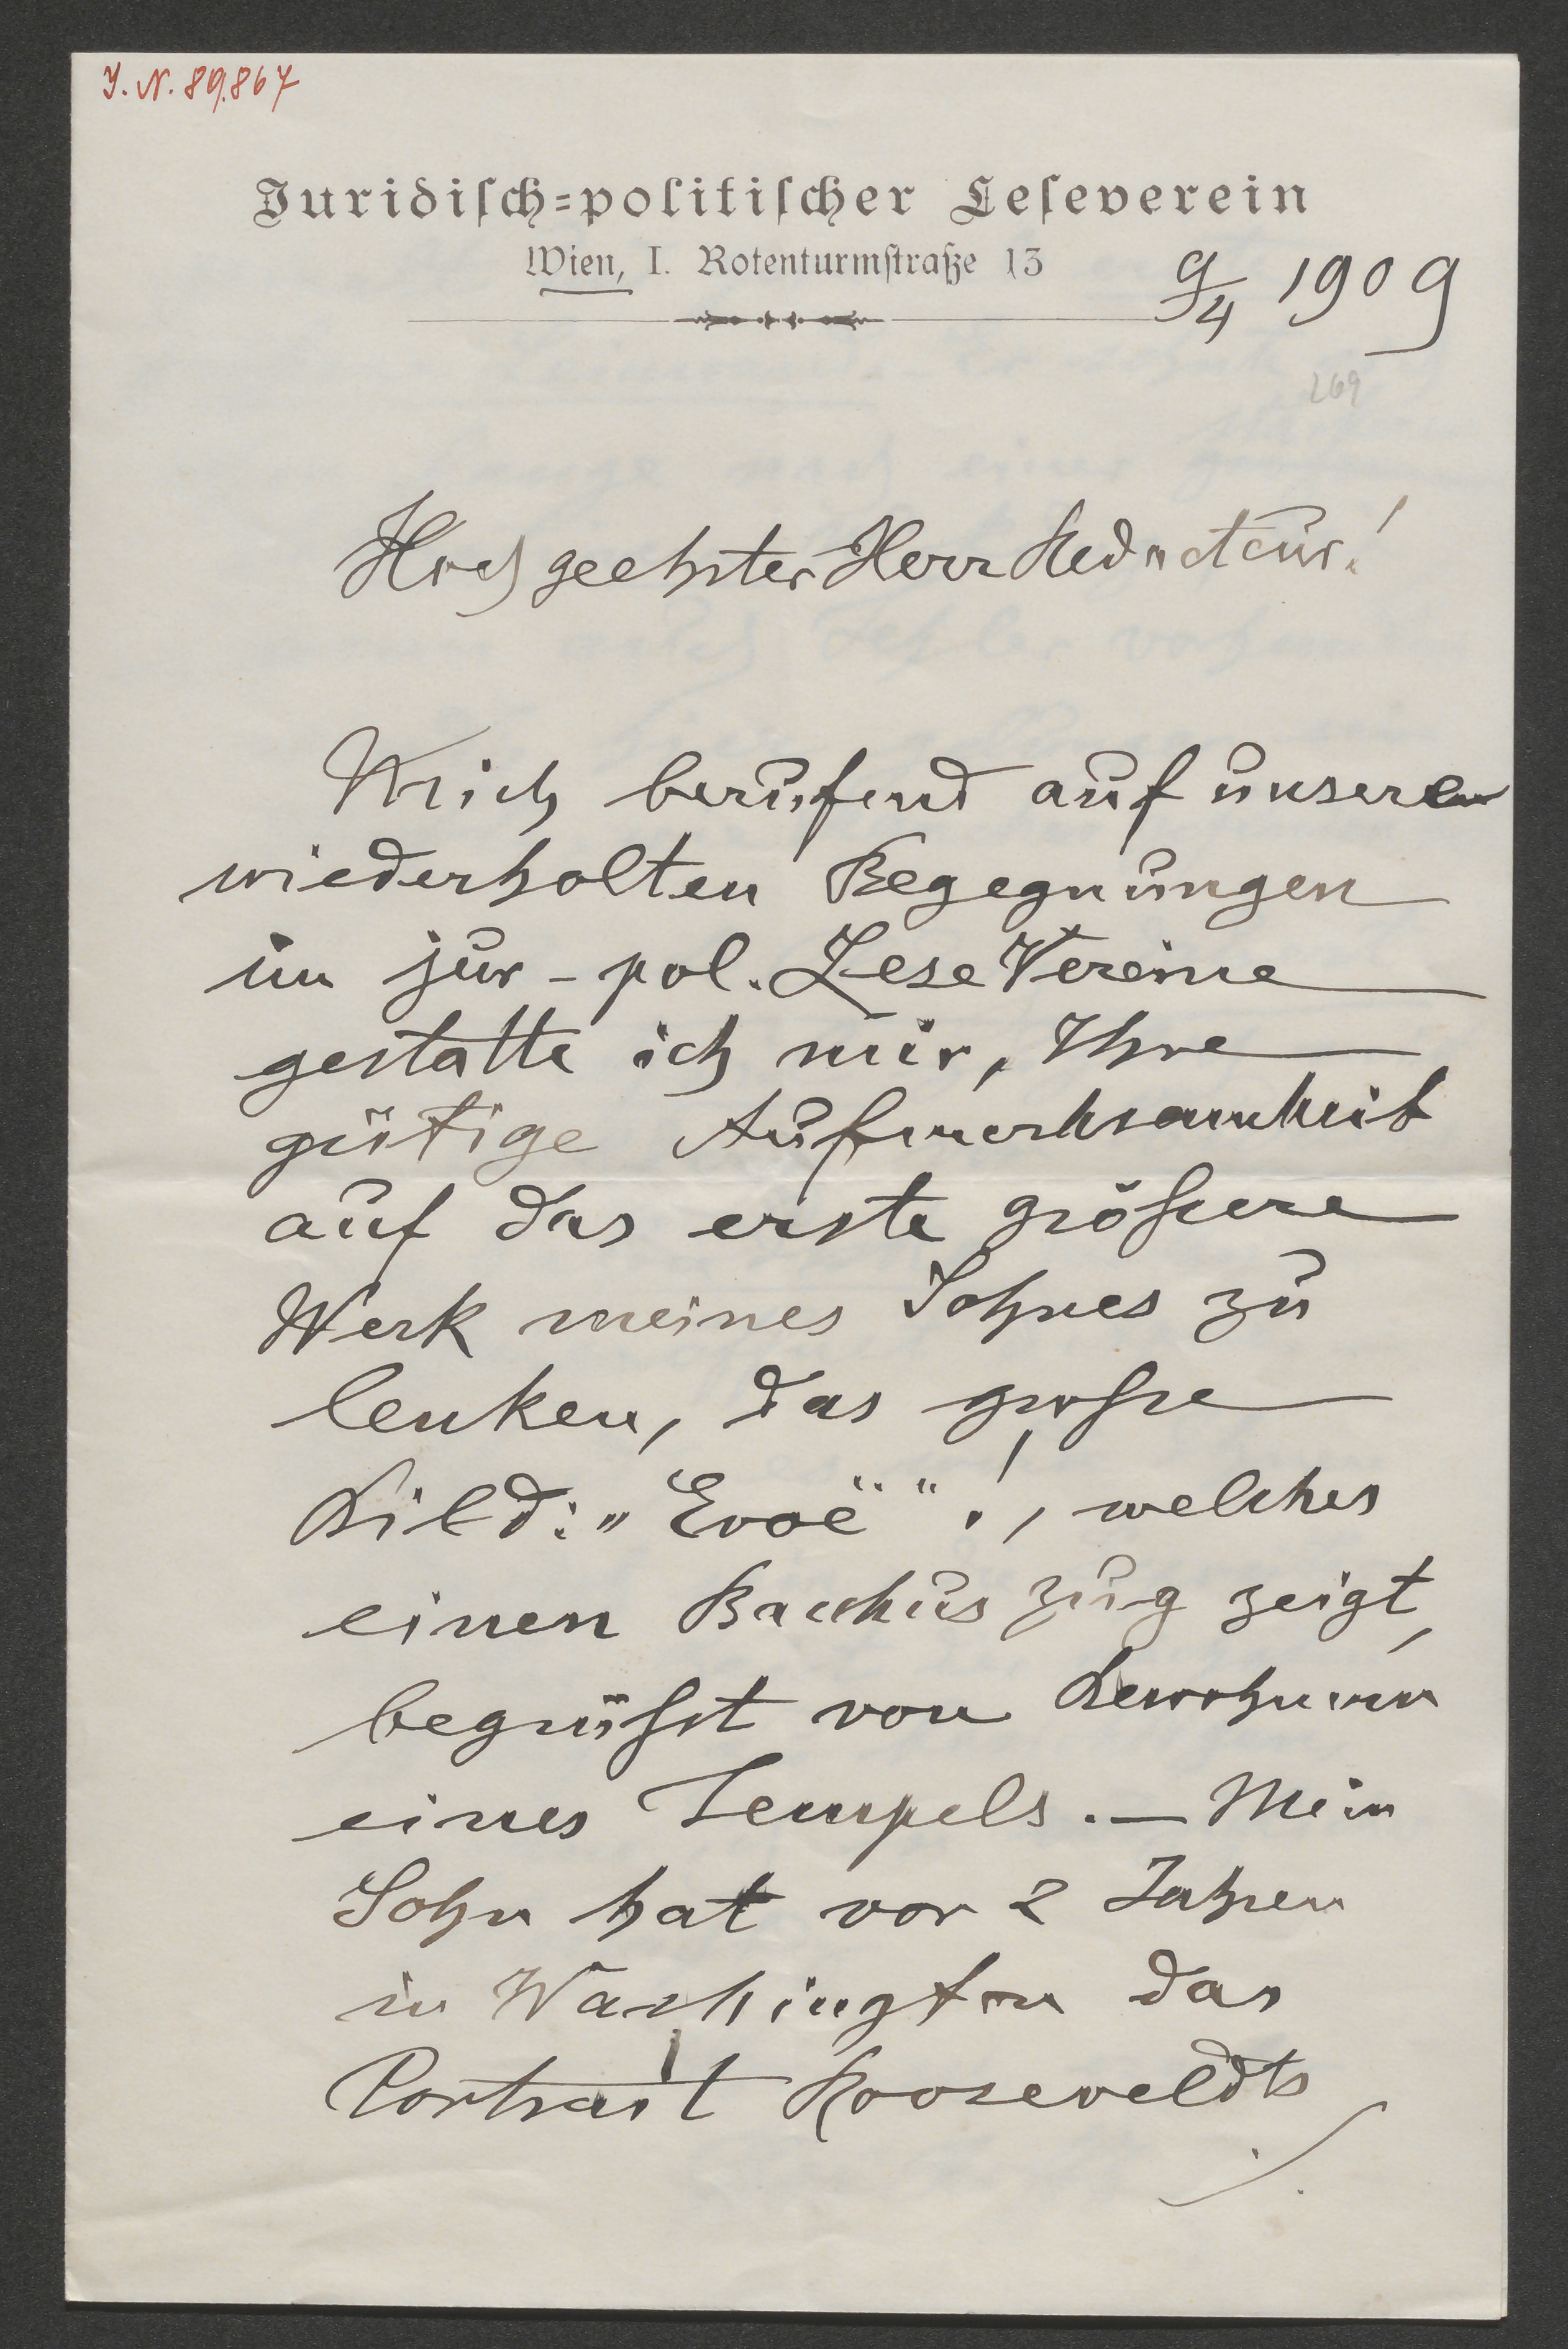 J. N. 89.867
Juridisch-politischer Leseverein
Wien, I. Rotenturmstraße 13
9/4 1909
269
Hochgeehrter Herr Redacteur!
Mich berufend auf unsere
wiederholten Begegnungen
im jur-pol. Lese Vereine
gestatte ich mir, Ihre
gütige Aufmerksamkeit
auf das erste größere
Werk meines Sohnes zu
lenken, das große
Bild: „Evoë“!, welches
einen Bacchus zug zeigt,
begrüßt von Bewohnern
eines Tempels. – Mein
Sohn hat vor 2 Jahren
in Washington das
Portrait Rooseveldts
./.